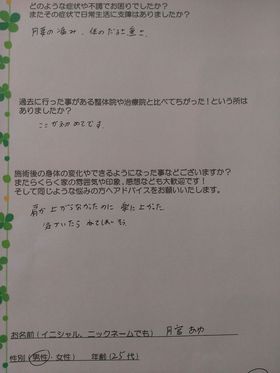 どのような症状や不調でお困りでしたか？
またその症状で日常生活に支障はありましたか？
体のだるさ
過去に行った事がある整体院や治療院と比べてちがった！という所は
ありましたか？
ここが初めてです。
施術後の身体の変化やできるようになった事などございますか？
またらくらく家の雰囲気や印象、感想なども大歓迎です！
そして同じような悩みの方へアドバイスをお願いいたします。
肩が上がらなかったのに 楽に上がった
お名前（イニシャル、ニックネームでも）
性別（男性・女性） 年齢（25代）